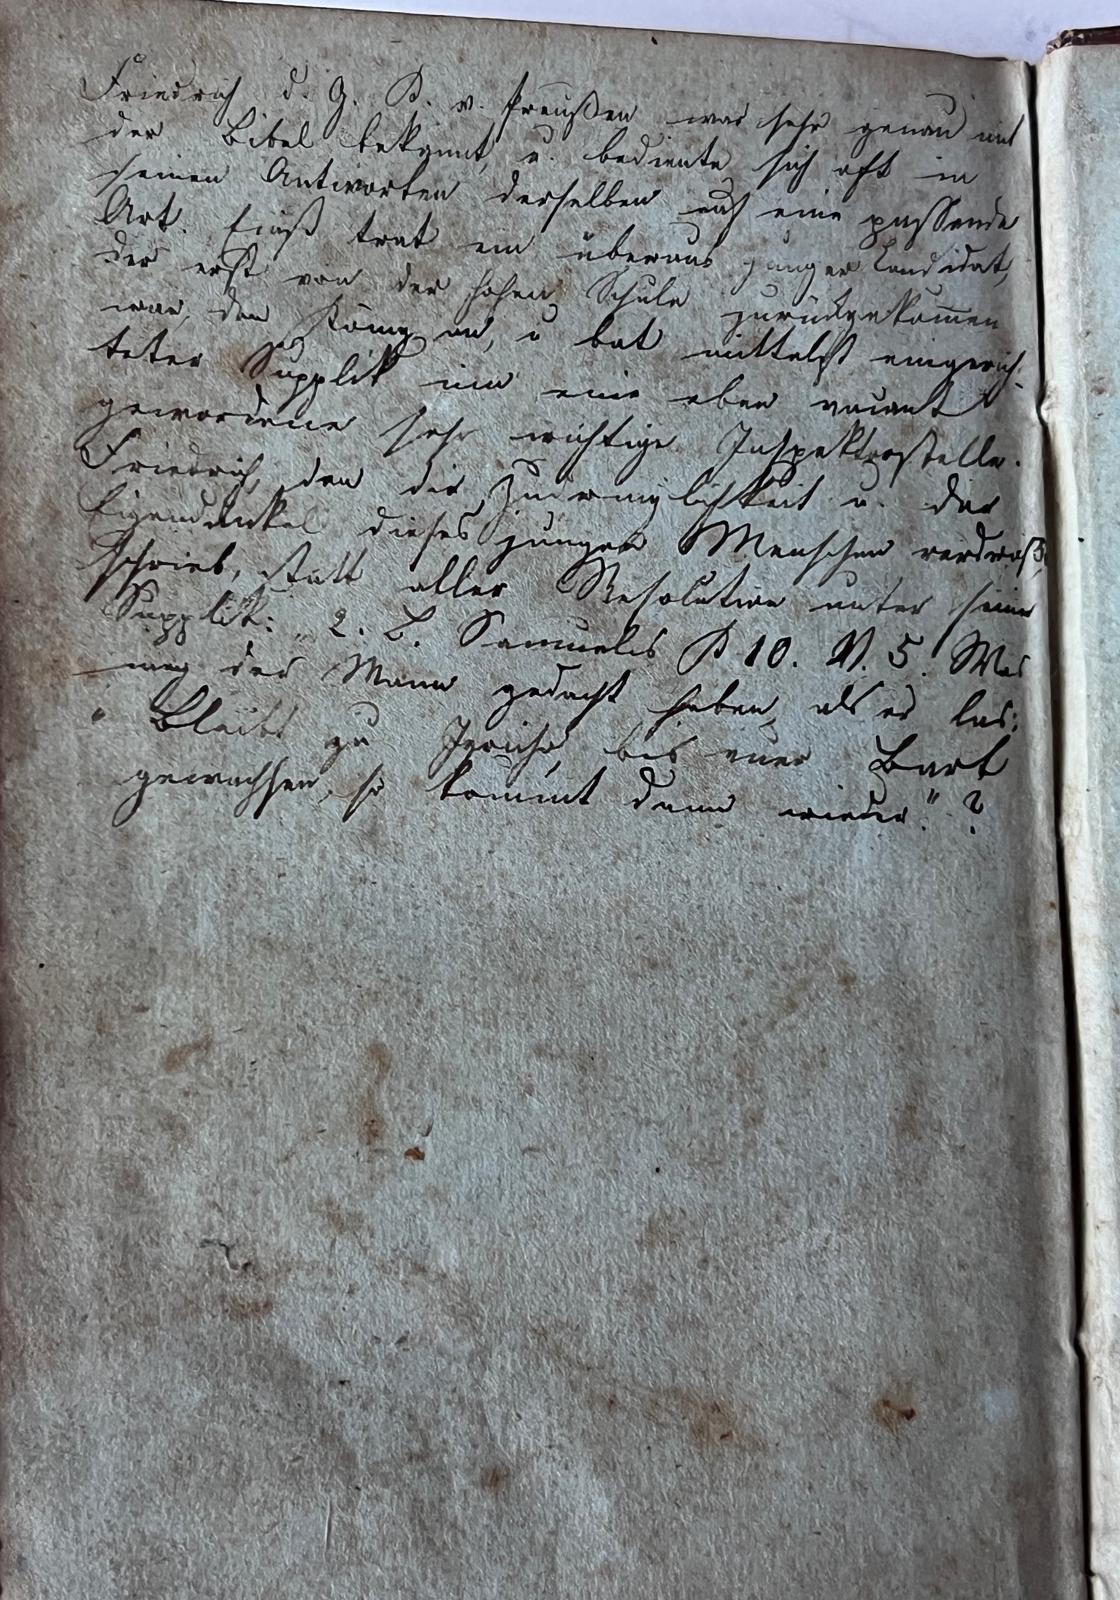 Friedrich d. G. K. v. Preußen war sehr genau mit
der Bibel bekannt, u. bediente sich oft in
seinen Antworten derselben auf eine passende
Art. Einst trat ein überaus junger Candidat,
der erst von der hohen Schule zurückgekommen
war, den König an, u bat mittelst eingereich-
teter Supplik um eine eben vacant
gewordene sehr wichtige Inspektorstelle.
Friedrich, den die Zudringlichkeit u. der
Eigendünkel dieses jungen Menschen verdroß,
schrieb, statt aller Resolution unter seine
Supplik: 2. B. Samuelis K 10. V. 5. Was
mag der Mann gedacht haben, als er las:
"Bleibt zu Jericho, bis euer Bart
gewachsen, so kommt dann wieder."?